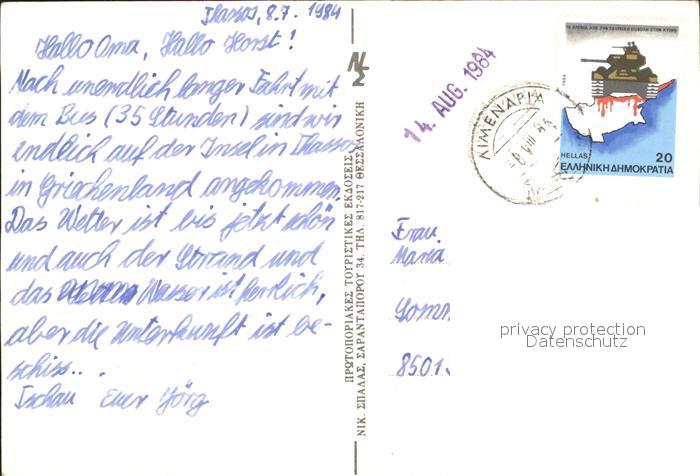 Thassos, 8.7. 1984
Hallo Oma, Hallo Horst!
Nach unendlich langer Fahrt mit
dem Bus (35 Stunden) sind wir
endlich auf der Insel in Thassos
in Griechenland angekommen.
Das Wetter ist bis jetzt schön
und auch der Strand und
das Wasser ist herrlich,
aber die Unterkunft ist be-
schiss...
Tschau Euer Jörg
ΠΡΩΤΟΠΟΡΙΑΚΕΣ ΤΟΥΡΙΣΤΙΚΕΣ ΕΚΔΟΣΕΙΣ
ΝΙΚ. ΣΠΑΛΑΣ, ΣΑΡΑΝΤΑΠΟΡΟΥ 34, ΤΗΛ. 817-217 ΘΕΣΣΑΛΟΝΙΚΗ
14. AUG. 1984
ΛΙΜΕΝΑΡΙΑ
1984
HELLAS 20
ΕΛΛΗΝΙΚΗ ΔΗΜΟΚΡΑΤΙΑ
Frau
Maria
8501
privacy protection
Datenschutz